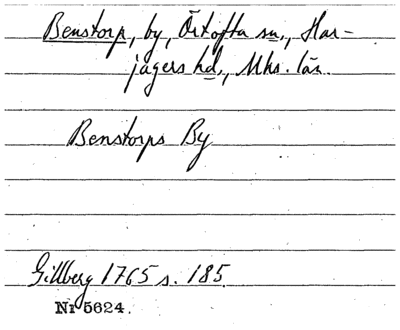 Benstorp, by, Örtofta sn., Har-
jagers hd., Mhs. län.
Benstorps By
Gillberg 1765 s. 185.
Nr 5624.